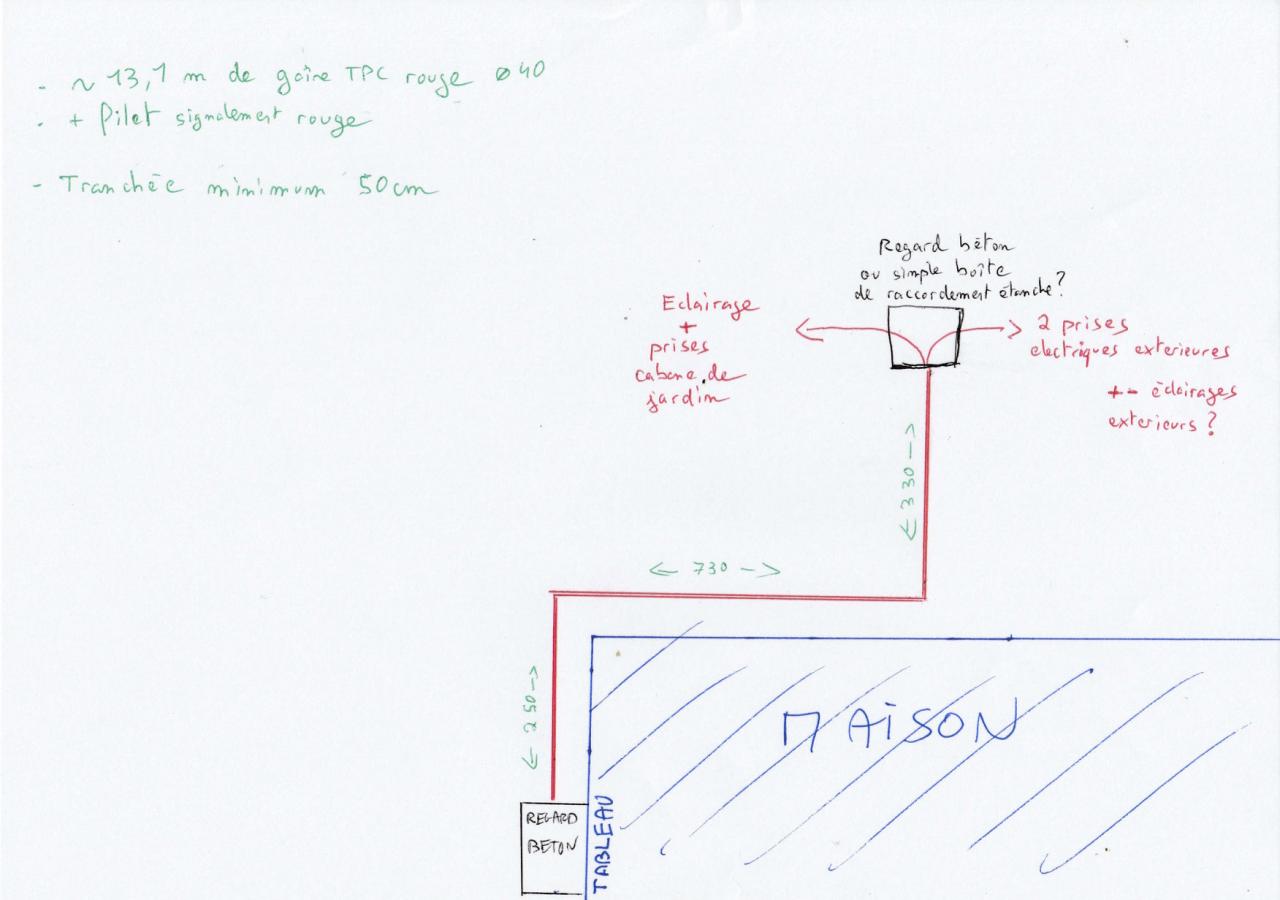 - ~ 13,1 m de gaîne TPC rouge ⌀40
. + filet signalement rouge
- Tranchée minimum 50cm
Regard béton
ou simple boîte
de raccordement étanche ?
Eclairage
+
prises
cabane de
jardin
2 prises
electriques exterieures
+- éclairages
exterieurs ?
<- 330 ->
<- 730 ->
<- 250 ->
MAiSON
REGARD
BETON
TABLEAU